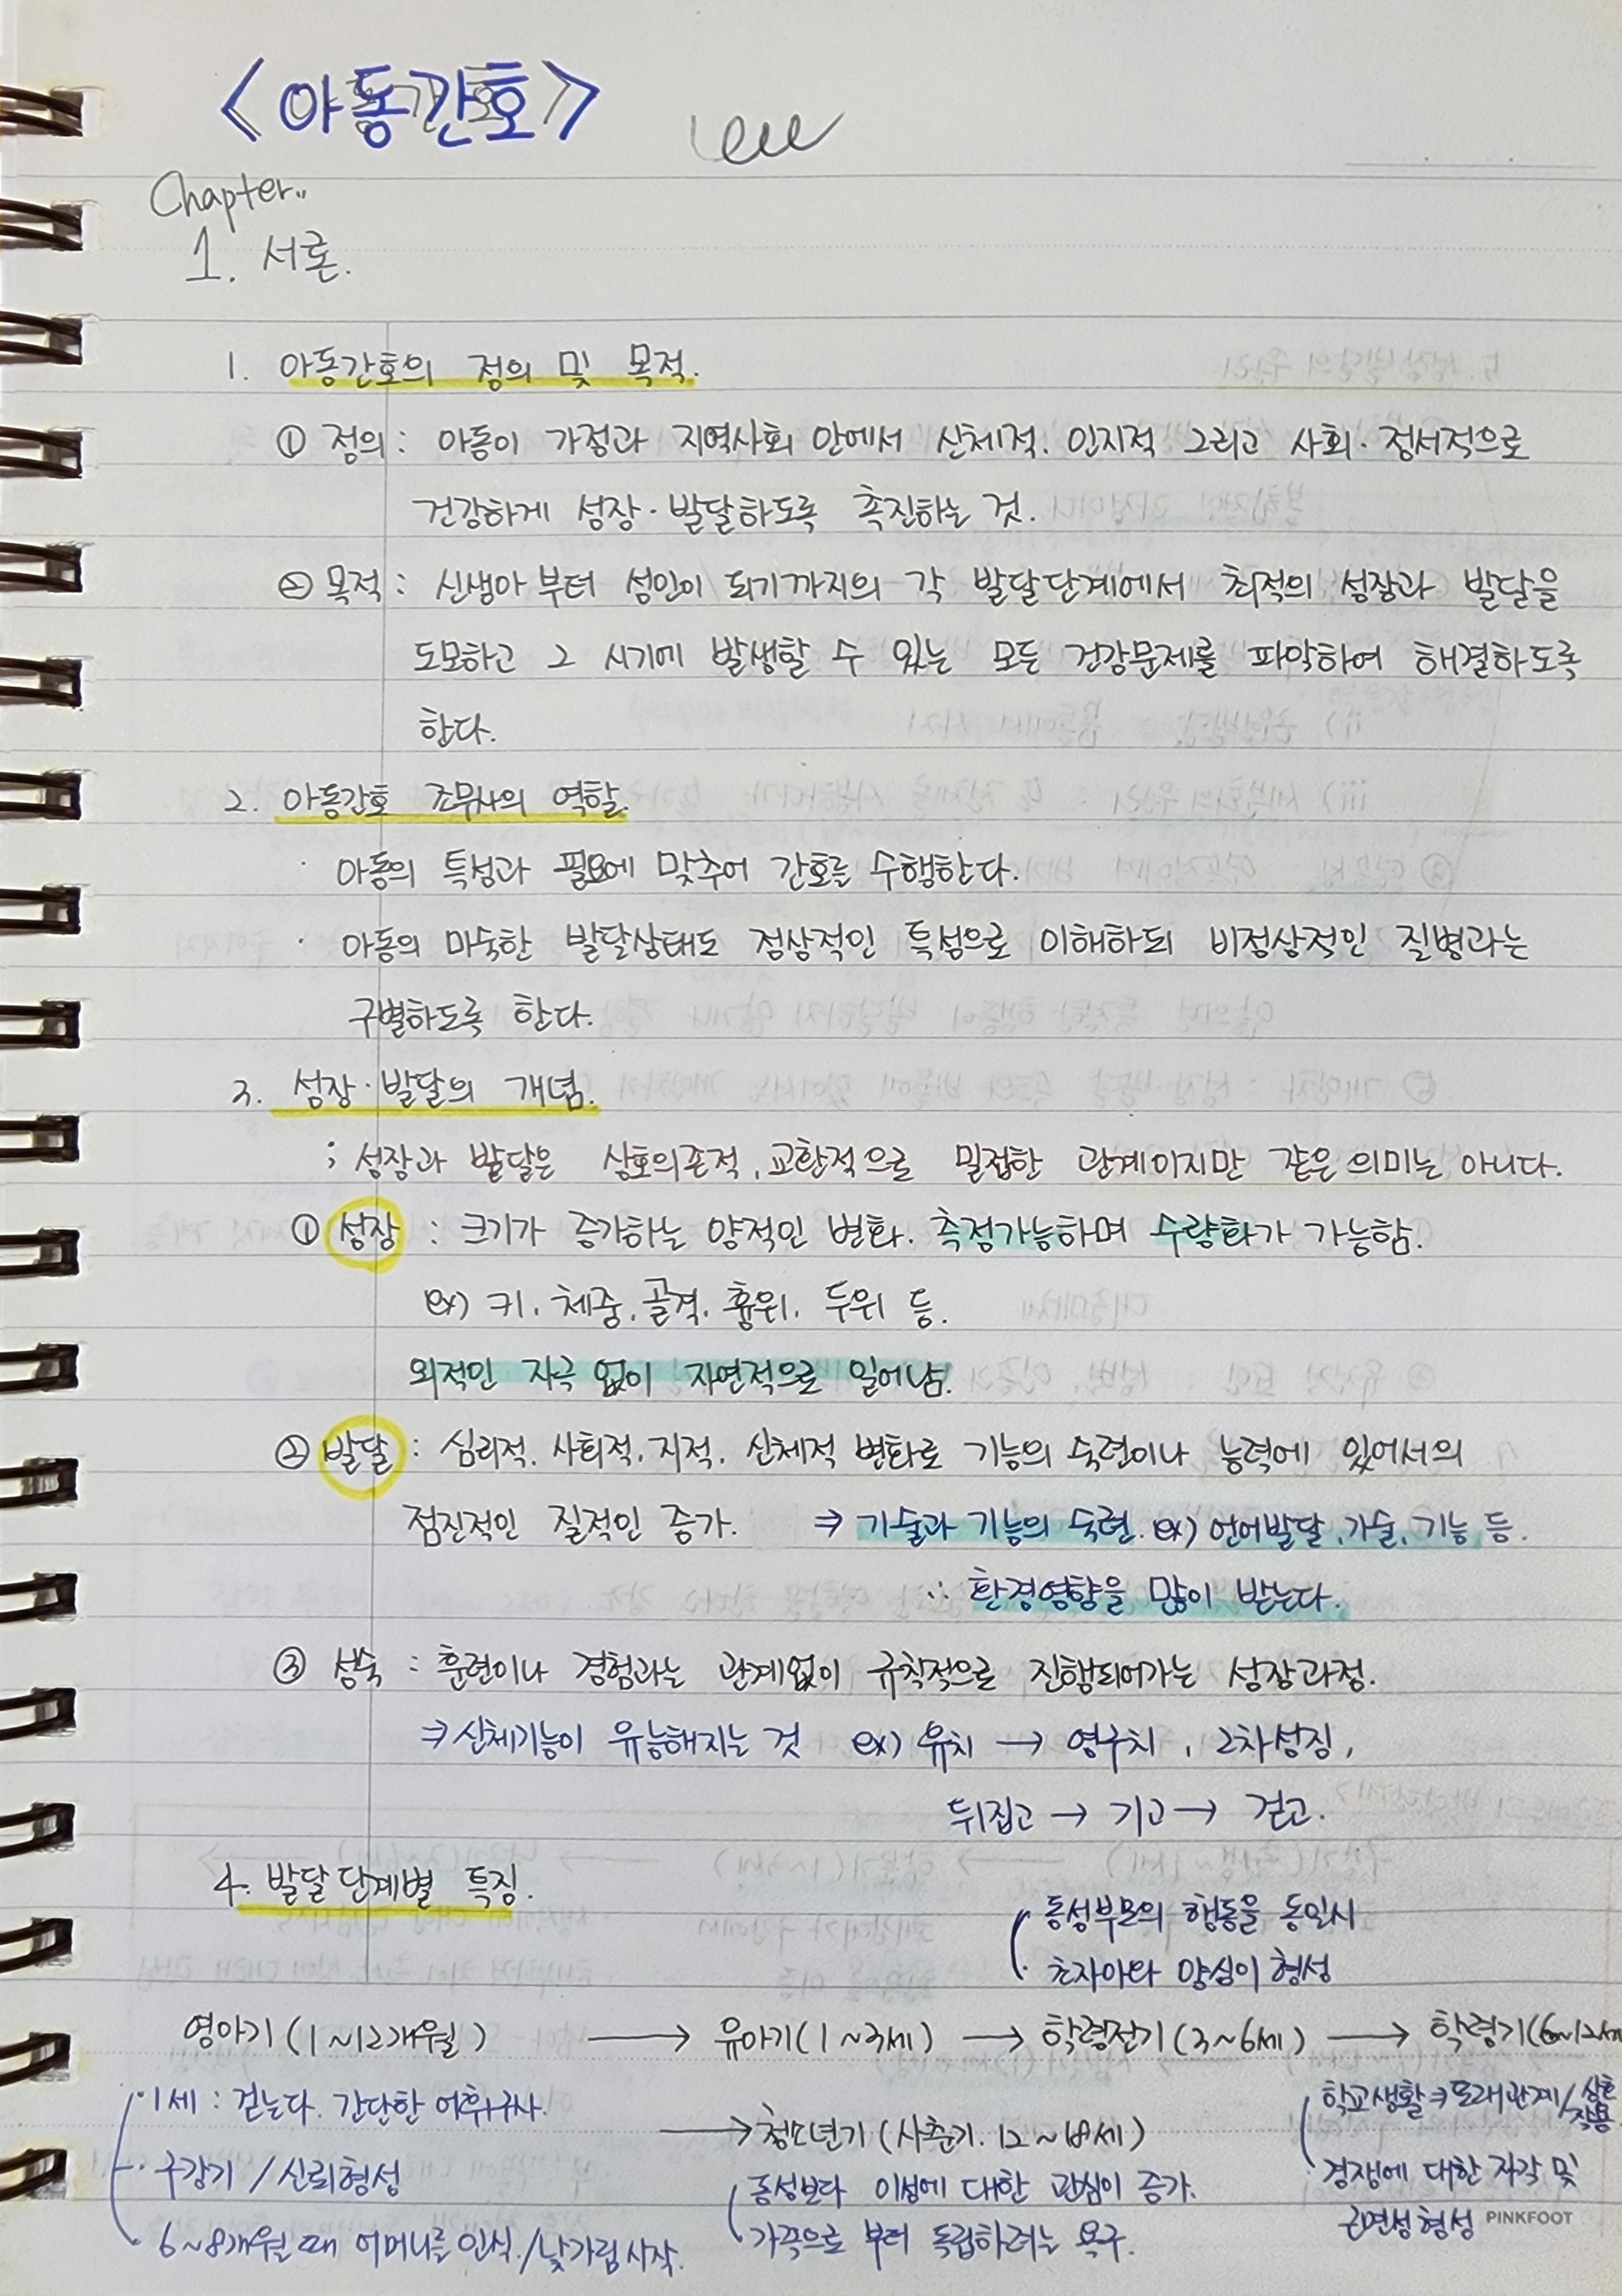 <아동간호>
Chapter..
1. 서론.
1. 아동간호의 정의 및 목적.
① 정의 : 아동이 가정과 지역사회 안에서 신체적. 인지적 그리고 사회·정서적으로
건강하게 성장·발달하도록 촉진하는 것.
② 목적 : 신생아부터 성인이 되기까지의 각 발달단계에서 최적의 성장과 발달을
도모하고 그 시기에 발생할 수 있는 모든 건강문제를 파악하여 해결하도록
한다.
2. 아동간호 조무사의 역할.
· 아동의 특성과 필요에 맞추어 간호를 수행한다.
· 아동의 미숙한 발달상태도 정상적인 특성으로 이해하되 비정상적인 질병과는
구별하도록 한다.
3. 성장·발달의 개념.
; 성장과 발달은 상호의존적, 교환적으로 밀접한 관계이지만 같은 의미는 아니다.
① 성장 : 크기가 증가하는 양적인 변화. 측정가능하며 수량화가 가능함.
ex) 키, 체중, 골격, 흉위, 두위 등.
외적인 자극 없이 자연적으로 일어남.
② 발달 : 심리적. 사회적. 지적. 신체적 변화로 기능의 숙련이나 능력에 있어서의
점진적인 질적인 증가. ⇒ 기술과 기능의 숙련. ex) 언어발달, 기술, 기능 등.
∴ 환경영향을 많이 받는다.
③ 성숙 : 훈련이나 경험과는 관계없이 규칙적으로 진행되어가는 성장과정.
⇒ 신체기능이 유능해지는 것 ex) 유치 → 영구치, 2차성징,
뒤집고 → 기고 → 걷고.
4. 발달단계별 특징.
동성부모의 행동을 동일시
초자아와 양심이 형성
영아기(1~12개월) → 유아기(1~3세) → 학령전기(3~6세) → 학령기(6~12세
· 1세 : 걷는다. 간단한 어휘구사.
· 구강기 / 신뢰형성
6~8개월 때 어머니를 인식./낯가림 시작.
→ 청소년기(사춘기. 12~18세)
동성보다 이성에 대한 관심이 증가.
가족으로 부터 독립하려는 욕구.
학교생활 ⇒ 또래관계/상호작용
경쟁에 대한 자각 및
근면성 형성
PINKFOOT